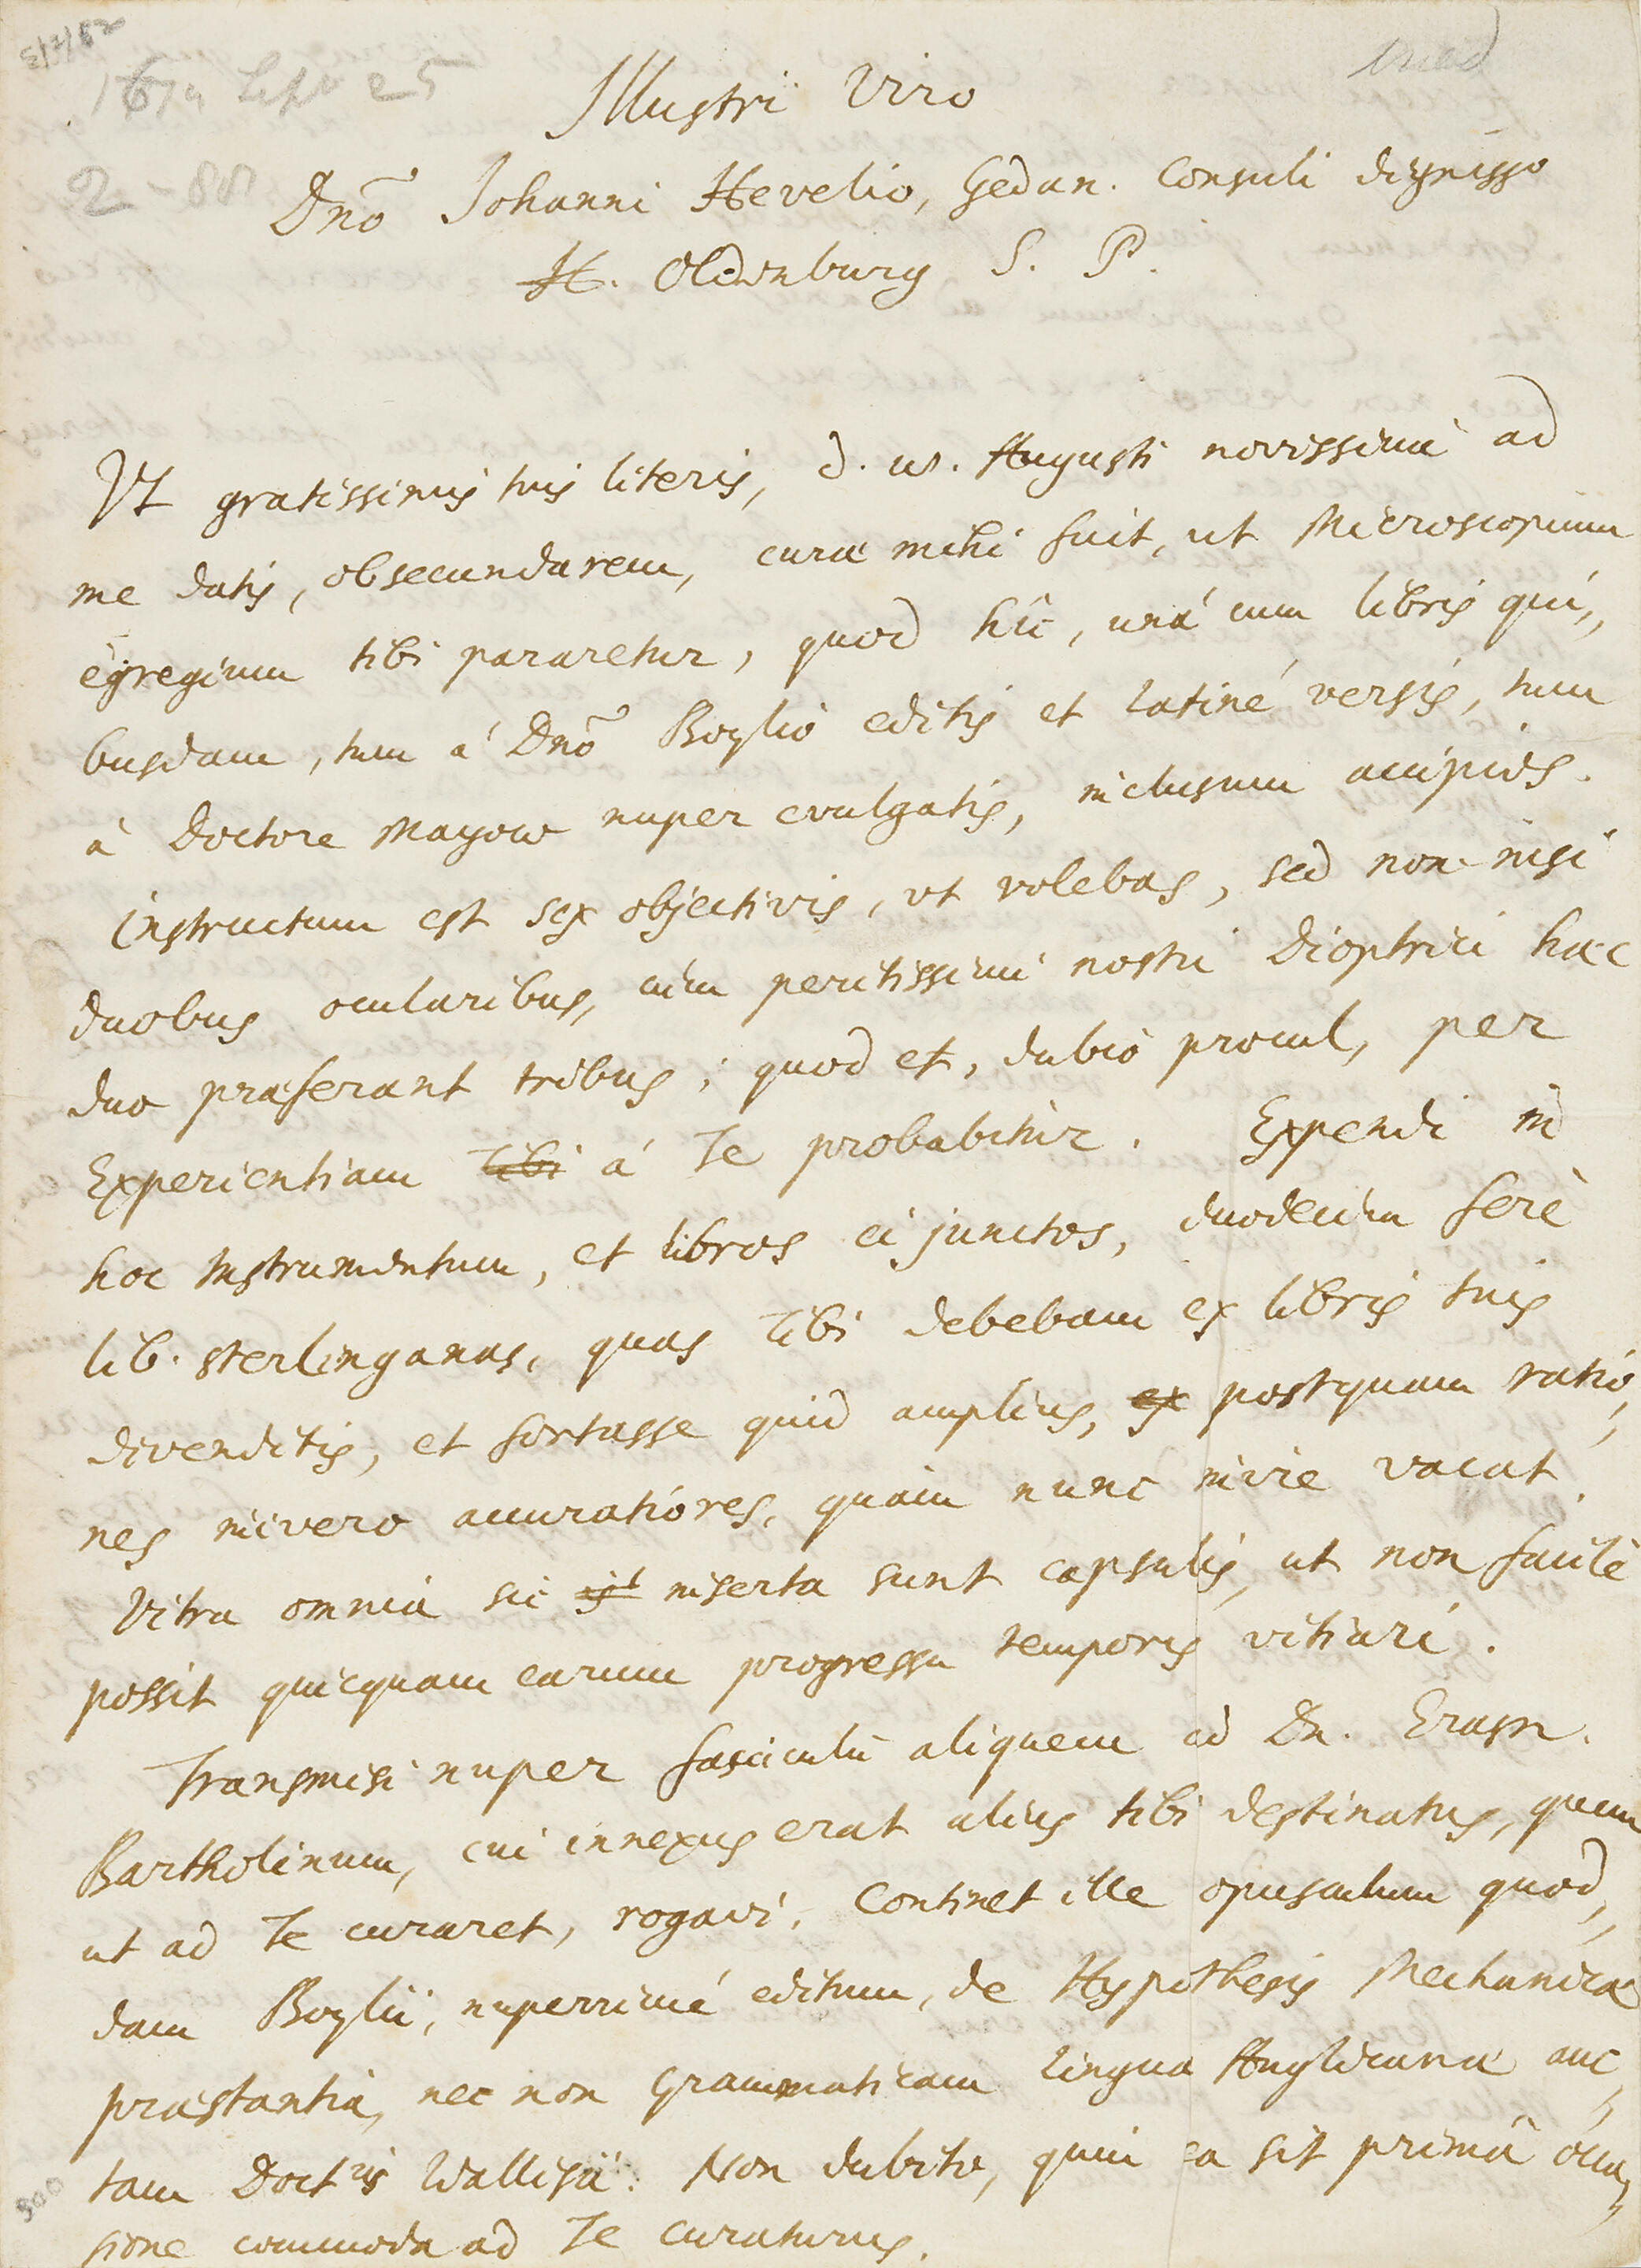 1674 Sept 25
Illustri Viro
Dnō Johanni Hevelio, Gedan. Consuli dignisso
H. Oldenburg S. P.
Vt gratissimis tuis literis, d. Augusti novissimè ad
me datis, obsecundarem, curae mihi fuit, ut Microscopium
egregium tibi pararetur, quod hîc, unà cum libris qui,,
busdam, tum à Dnō Boylio editis et Latinè versis, tum
à Doctore Mayow nuper evulgatis, inclusum accipies.
Instructum est sex objectivis, ut volebas, sed non nisi
duobus ocularibus, cùm peritissimi nostri Dioptrici haec
duo praeferant tribus; quod et, dubiò procul, per
Experientiam tibi à Te probabitur. Expendi in
hoc Instrumentum, et libros ei junctos, duodecim ferè
lib. sterlinganas, quas Tibi debebam ex libris tuis
divenditis, et fortasse quid amplius, ex postquam ratio,,
nes inivero accuratiores, quàm nunc inire vacat.
Vitra omnia sic inserta sunt capsulis, ut non facilè
possit quicquam earum progressu temporis vitiari.
Transmisi nuper fasciculū aliquem ad Dn. Erasm.
Bartholinum, cui innexus erat alius tibi destinatus, quem
ut ad Te curaret, rogavi. Continet ille opusculum quod,,
dam Boylii, nuperrimé editum, de Hypothesis Mechanicae
praestantiâ, nec non Grammaticam Linguae Anglicanae auc,,
tam Doctris Wallisii. Non dubito, quin ea sit primâ occa,,
sione commoda ad Te curaturus.